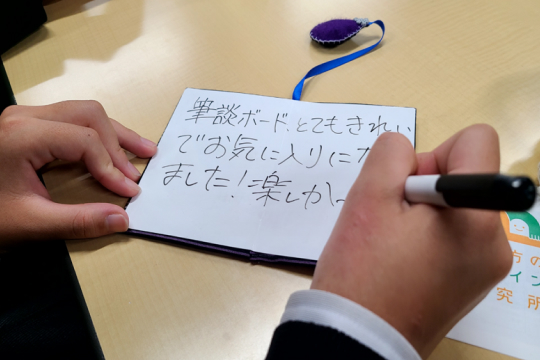 筆談ボード、とてもきれい
でお気に入りにな
ました！楽しかっ
方の
イン
究所